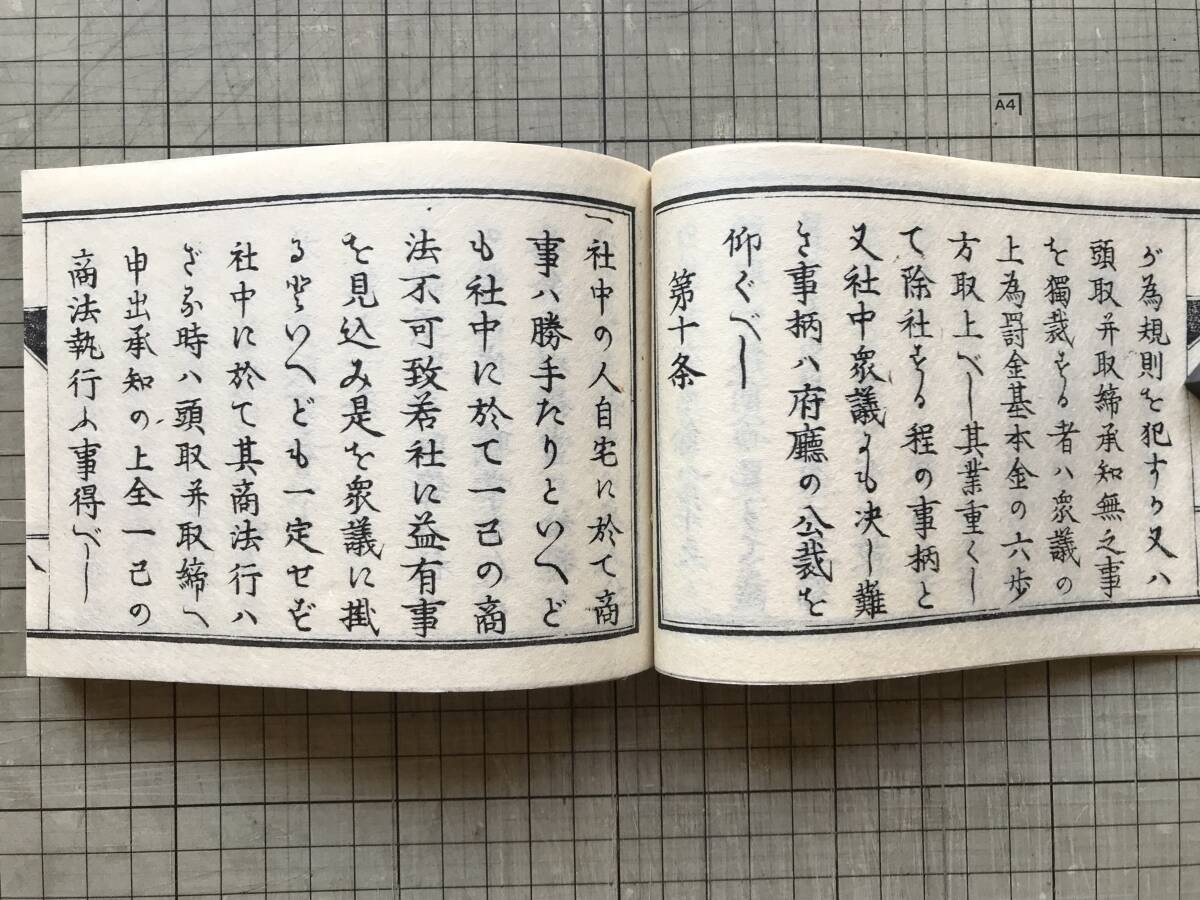 が為規則を犯すか又ハ
頭取并取締承知無之事
を獨裁する者ハ衆議の
上為罸金基本金の六歩
方取上べし其業重くし
て除社する程の事柄と
又社中衆議にも决し難
き事柄ハ府廳の公裁を
仰ぐべし
第十条
一社中の人自宅に於て商
事ハ勝手たりといへど
も社中に於て一己の商
法不可致若社に益有事
を見込み是を衆議に掛
るといへども一定せず
社中に於て其商法行ハ
ざる時ハ頭取并取締へ
申出承知の上全一己の
商法執行ふ事得べし
A4